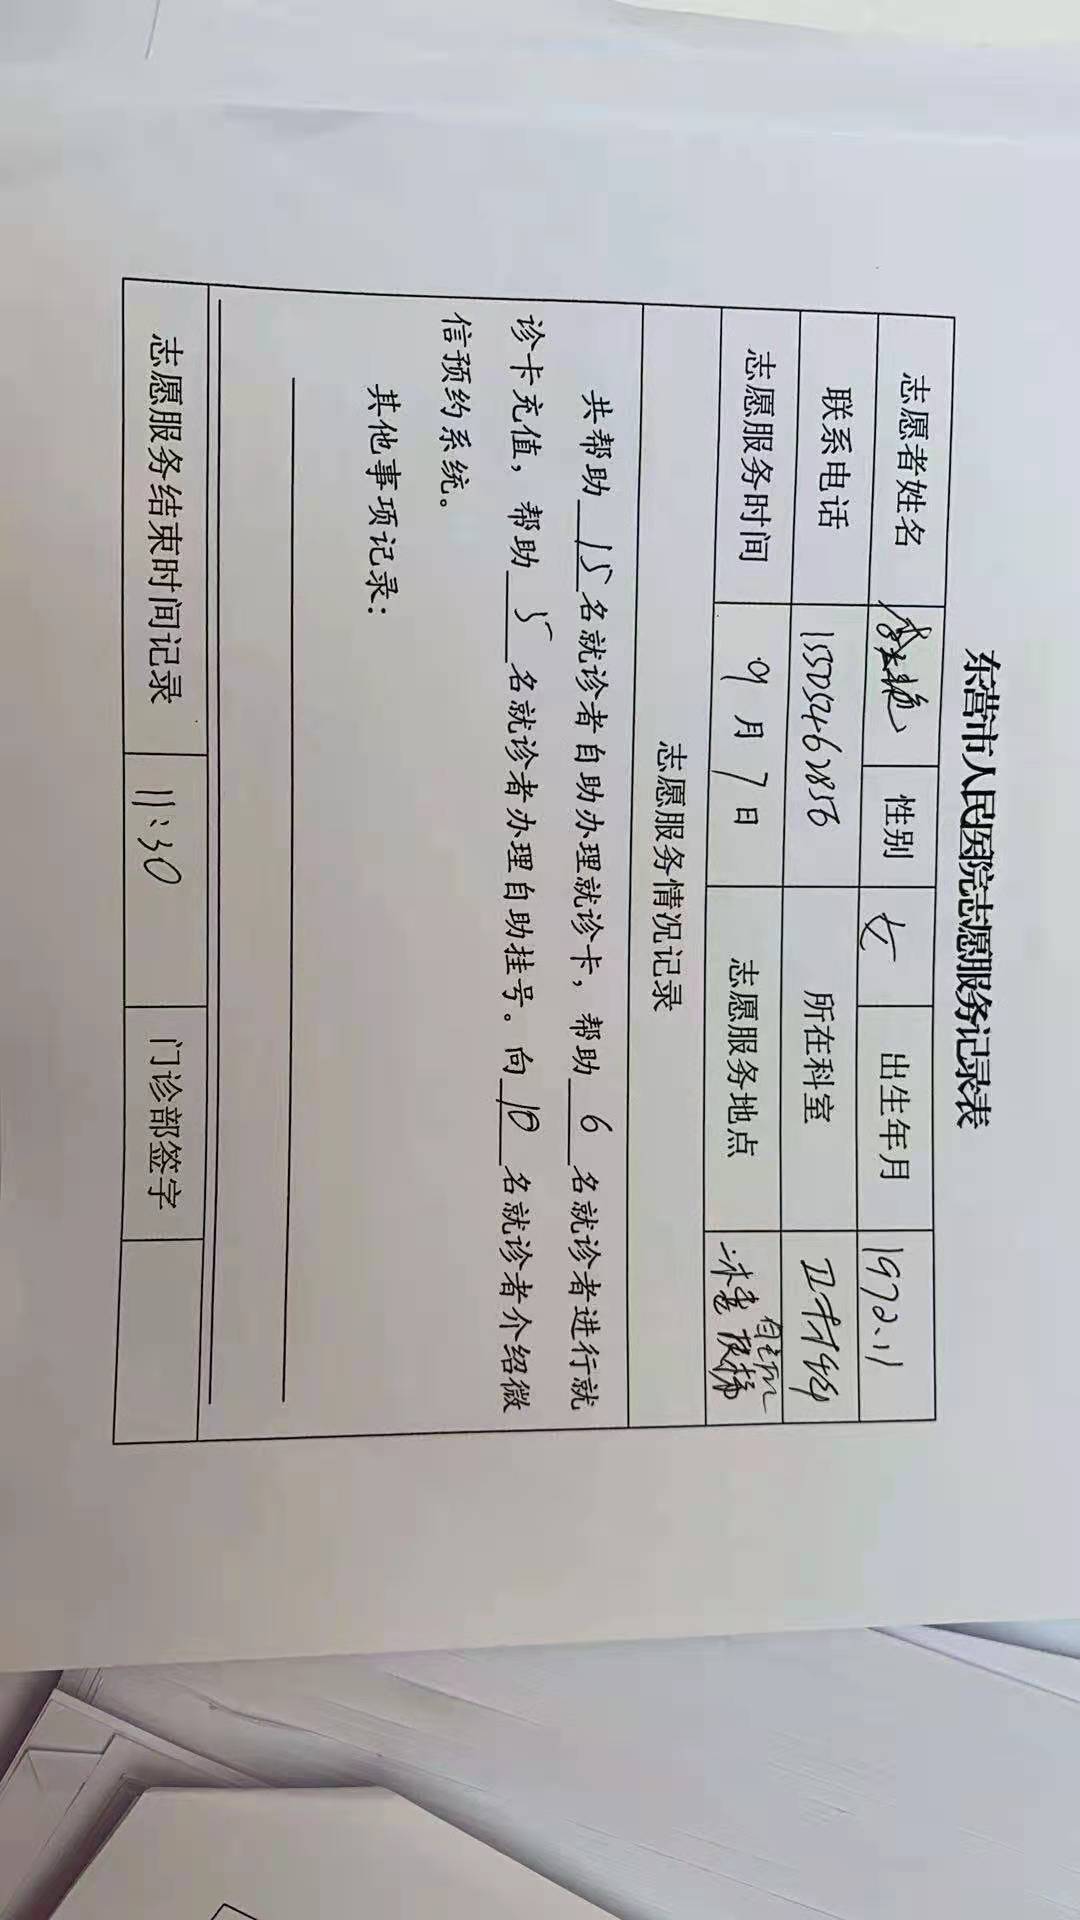 东营市人民医院志愿服务记录表
志愿者姓名 性别 女 出生年月 1972.11
联系电话 15505462856 所在科室
志愿服务时间 9月7日 志愿服务地点
志愿服务情况记录
共帮助15名就诊者自助办理就诊卡，帮助6名就诊者进行就
诊卡充值，帮助5名就诊者办理自助挂号。向10名就诊者介绍微
信预约系统。
其他事项记录：
志愿服务结束时间记录 11:30 门诊部签字